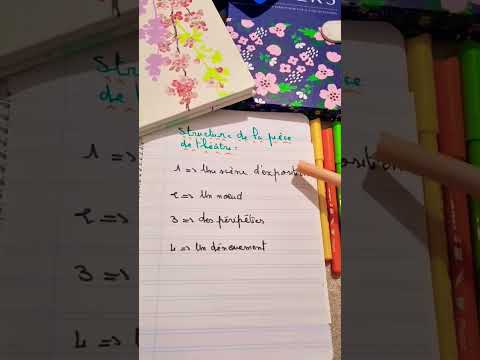 Structure de la pièce
de théâtre :
1 => Une scène d'exposition
2 => Un nœud
3 => des péripéties
4 => Un dénouement